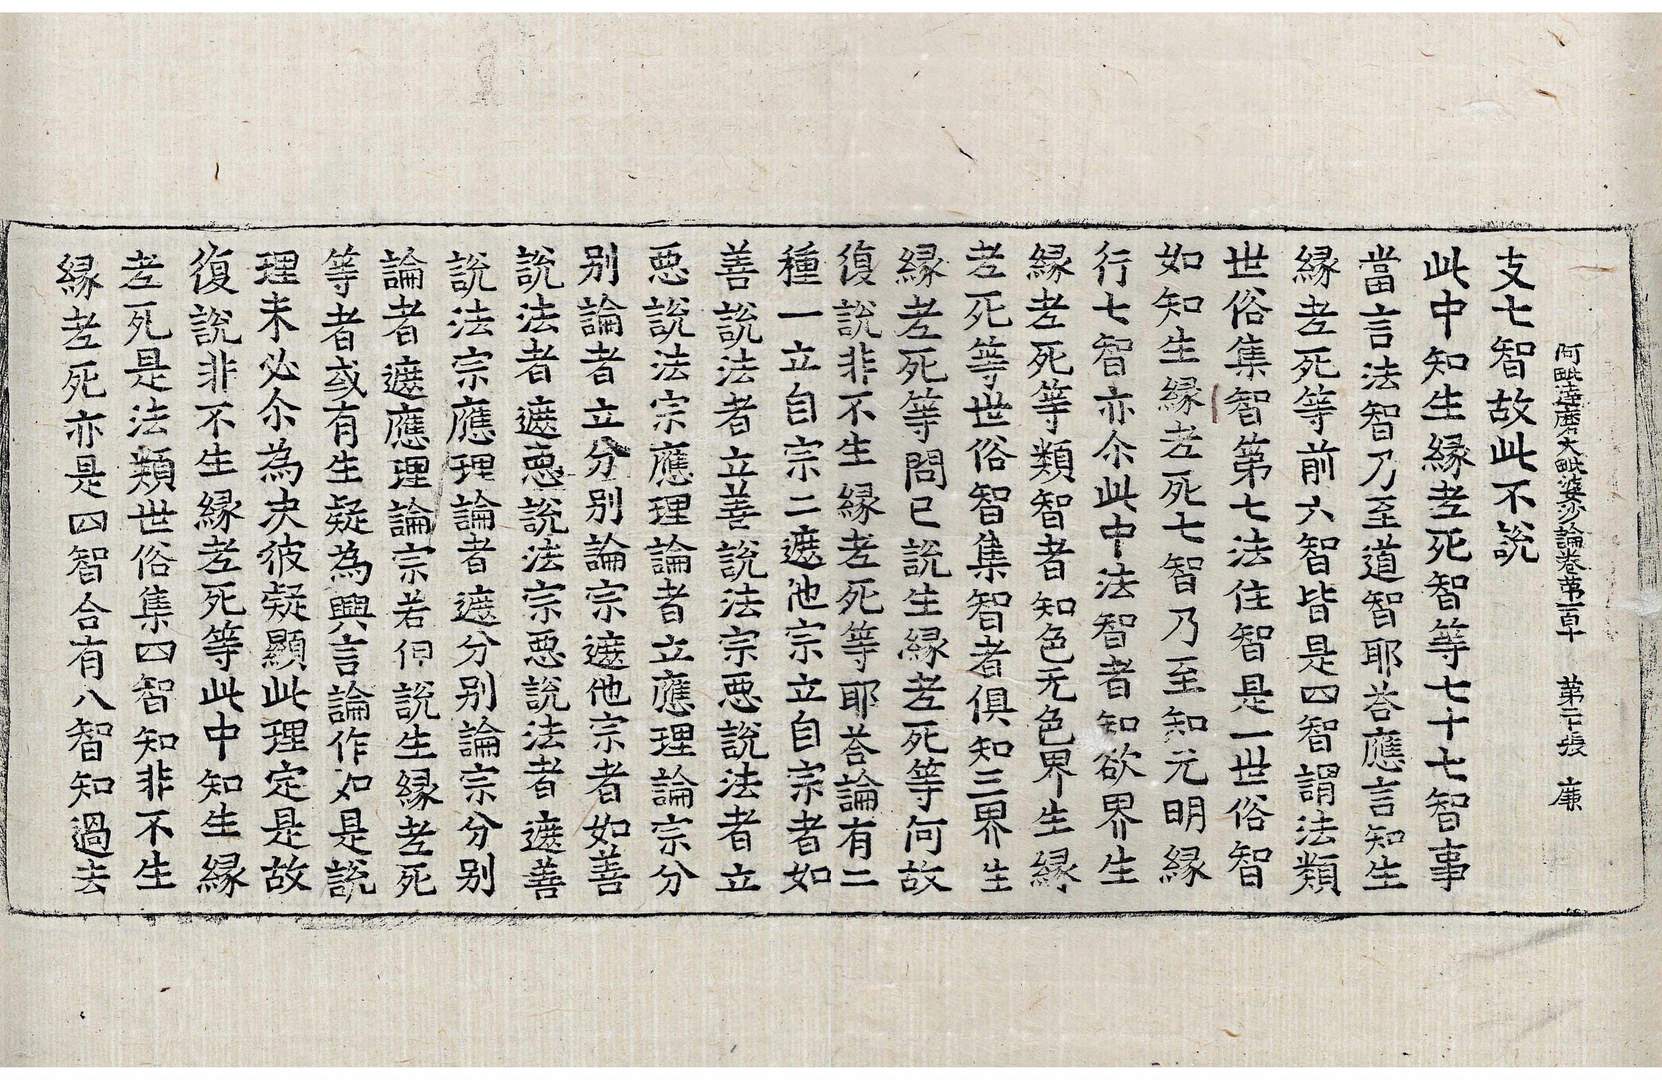 阿毗達磨大毗婆沙論卷第一百一十　第二十張　廉
支七智故此不說
此中知生緣老死智等七十七智事
當言法智乃至道智耶荅應言知生
緣老死等前六智皆是四智謂法類
世俗集智第七法住智是一世俗智
如知生緣老死七智乃至知无明緣
行七智亦尒此中法智者知欲界生
緣老死等類智者知色无色界生緣
老死等世俗智集智者俱知三界生
緣老死等問已說生緣老死等何故
復說非不生緣老死等耶荅論有二
種一立自宗二遮他宗立自宗者如
善說法者立善說法宗惡說法者立
惡說法宗應理論者立應理論宗分
別論者立分別論宗遮他宗者如善
說法者遮惡說法宗惡說法者遮善
說法宗應理論者遮分別論宗分別
論者遮應理論宗若但說生緣老死
等者或有生疑為興言論作如是說
理未必尒為決彼疑顯此理定是故
復說非不生緣老死等此中知生緣
老死是法類世俗集四智知非不生
緣老死亦是四智合有八智知過去